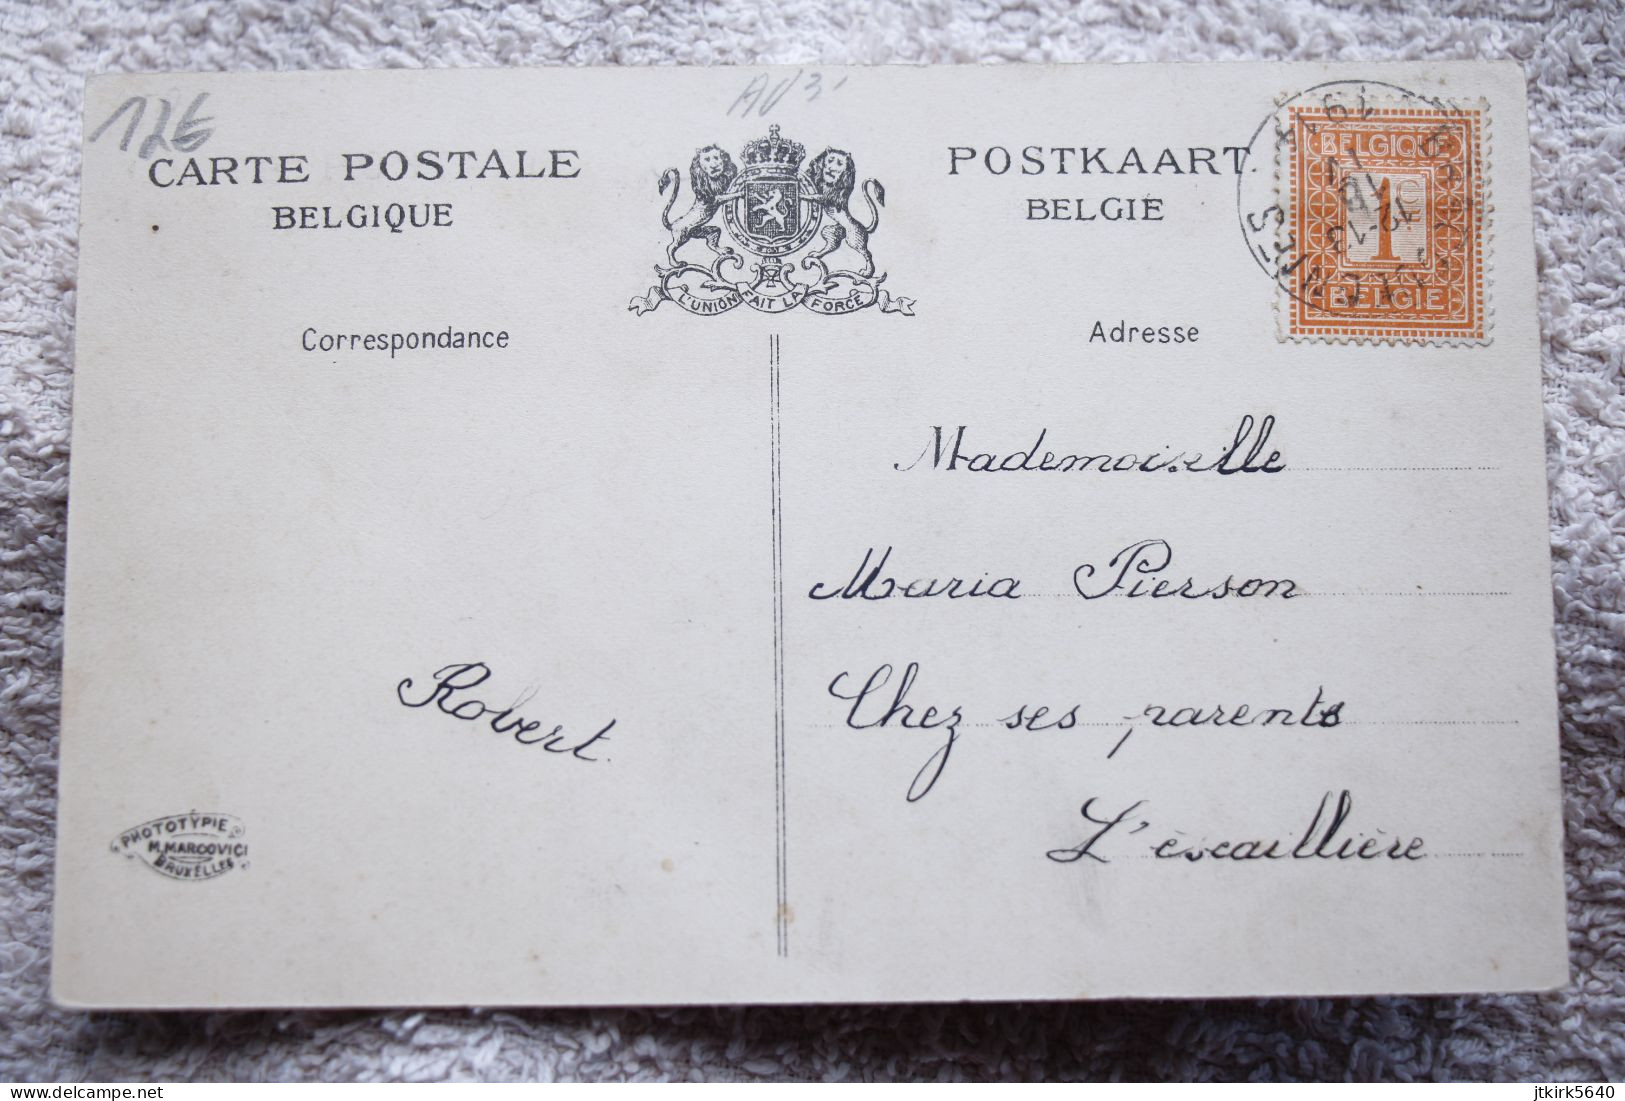 126
AV3
CARTE POSTALE
BELGIQUE
L'UNION FAIT LA FORCE
POSTKAART.
BELGIË
BELGIQUE
1c
BELGIË
12-13
Correspondance
Adresse
Mademoiselle
Maria Pierson
Chez ses parents
L'éscaillière
Robert.
PHOTOTYPIE
M. MARCOVICI
BRUXELLES
delcampe.net
jtkirk5640